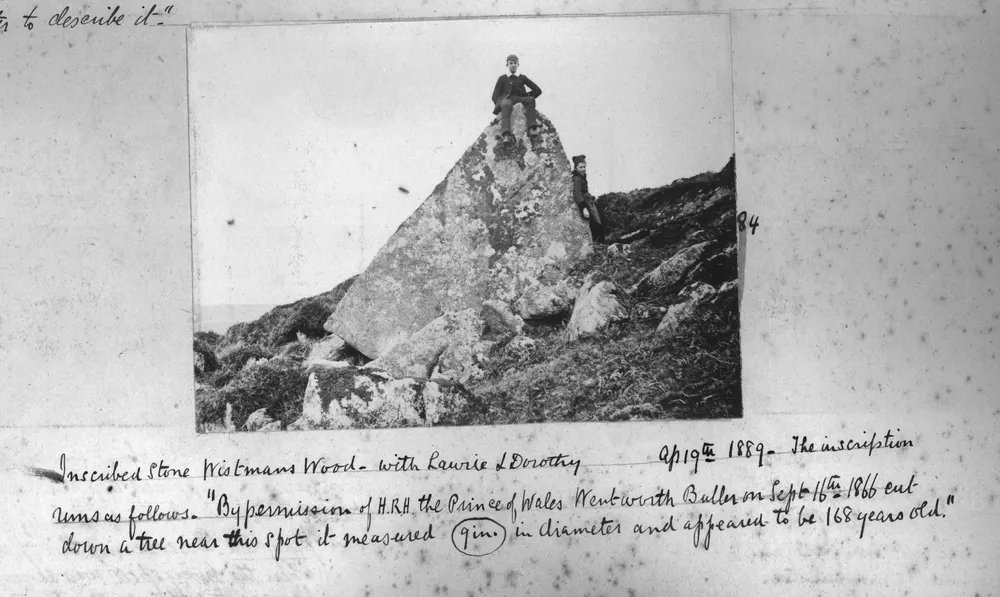 to describe it."
84
Inscribed Stone Wistmans Wood - with Lawrie & Dorothy Ap 19th 1889 - The inscription
runs as follows. "By permission of H.R.H. the Prince of Wales Wentworth Buller on Sept 16th 1866 cut
down a tree near this spot it measured 9 in. in diameter and appeared to be 168 years old."